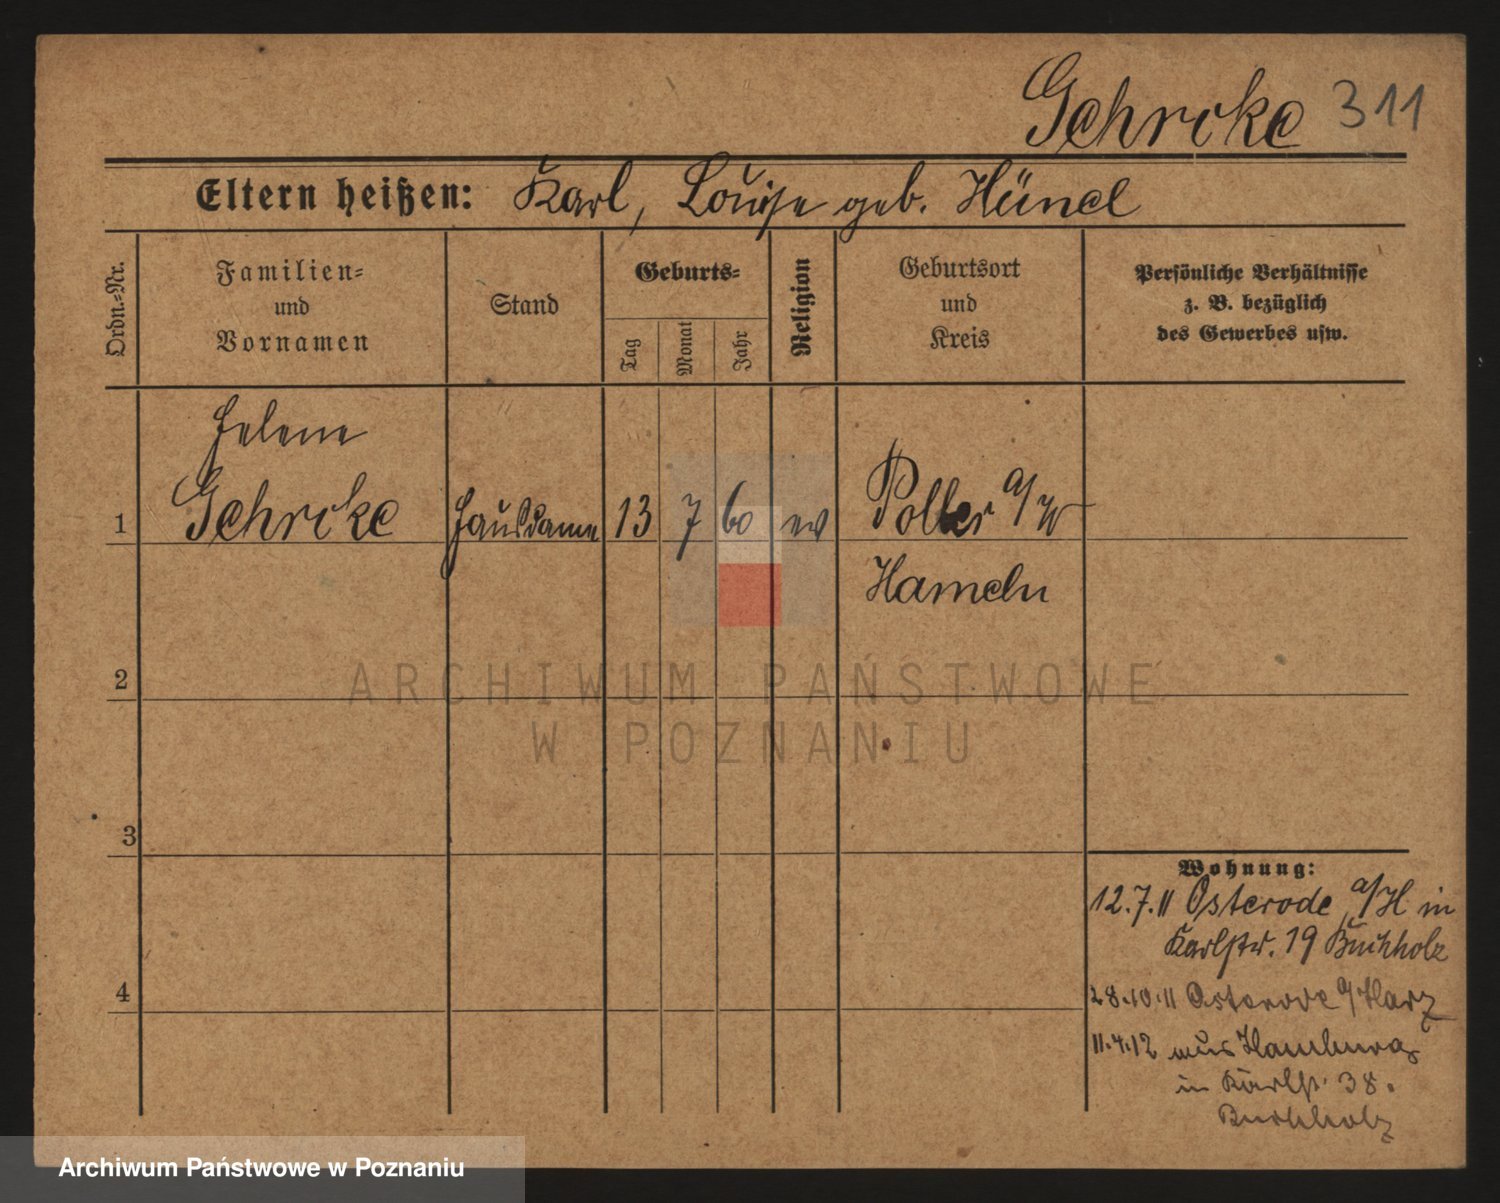 Gehrcke 311
Eltern heißen: Karl, Louise geb. Hünel
Ordn.-Nr.
Familien-
und
Vornamen
Stand
Geburts-
Tag
Monat
Jahr
Religion
Geburtsort
und
Kreis
Persönliche Verhältnisse
z. B. bezüglich
des Gewerbes usw.
Helene
1 Gehrcke Hausdame 13 7 60 ev Poller a/W
Hameln
2
3
4
Wohnung:
12.7.11 Osterode a/H in
Karlstr. 19 Buchholz
28.10.11 Osterode a/Harz
11.4.12 aus Hamburg
in Karlst. 38.
Buchholz
ARCHIWUM PAŃSTWOWE
W POZNANIU
Archiwum Państwowe w Poznaniu